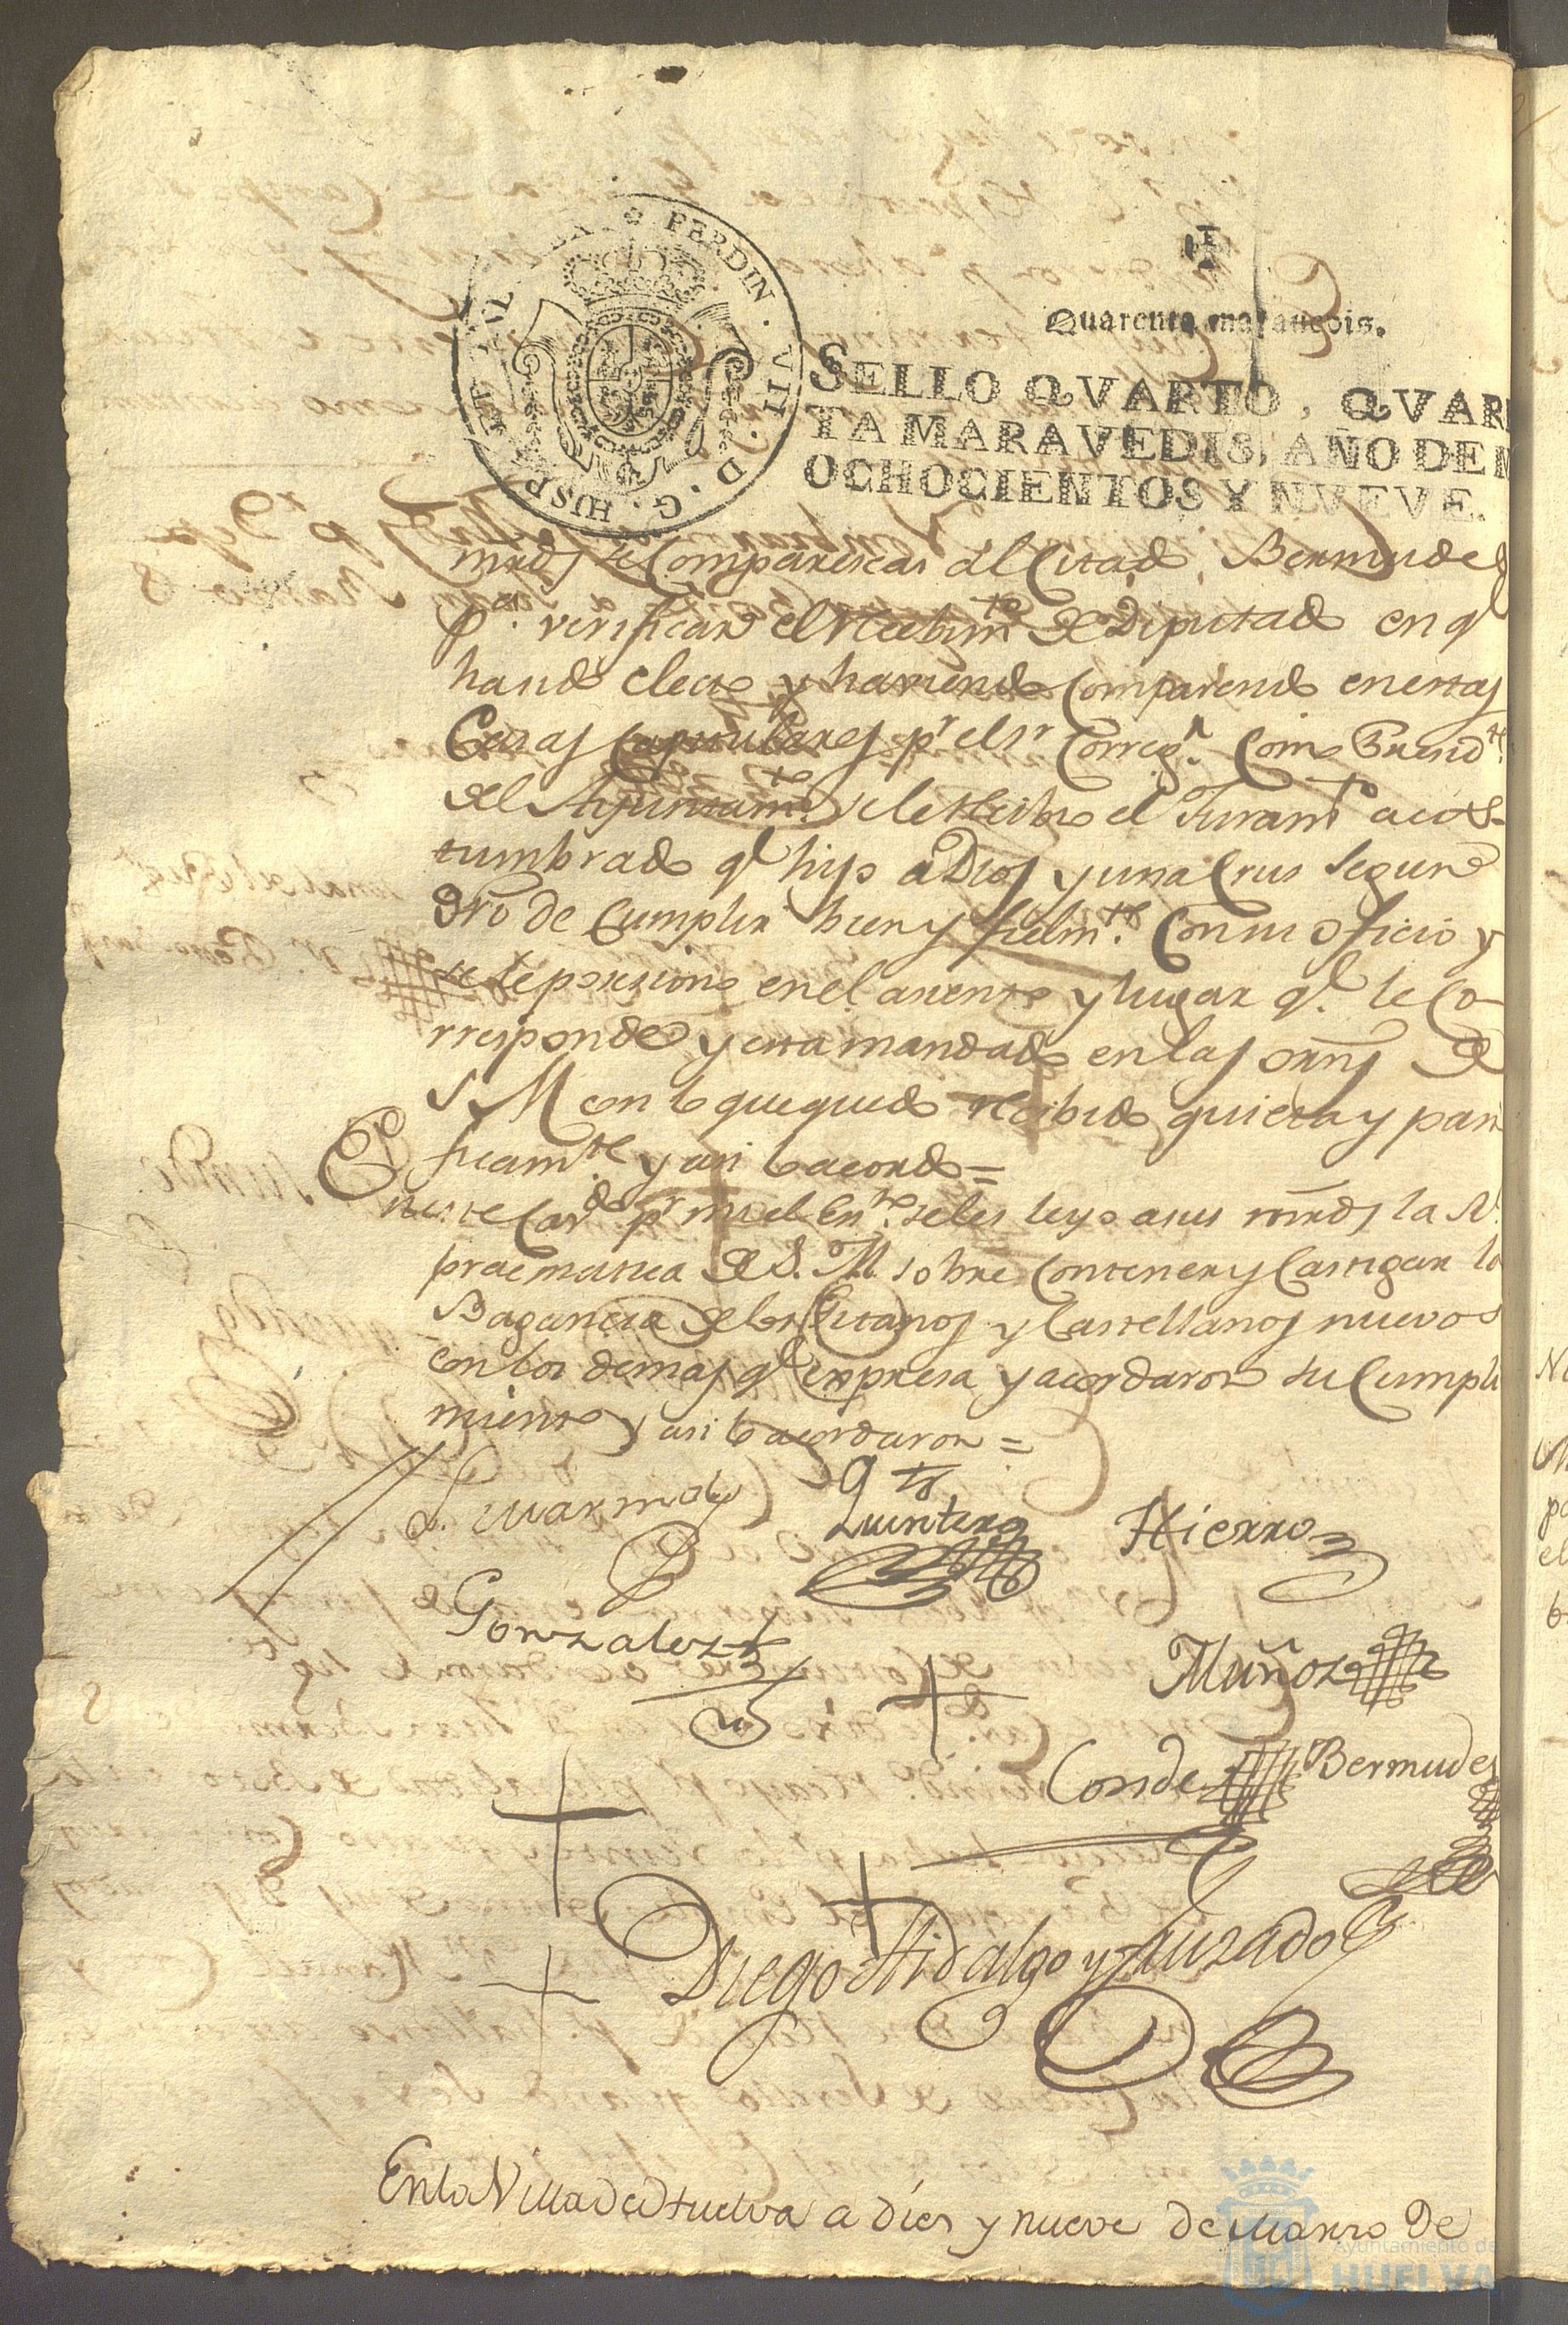 FERDIN. VII. D. G. HISP. ET
Quarenta maravedis.
SELLO QVARTO, QVAR
TA MARAVEDIS, AÑO DE M
OCHOCIENTOS Y NVEVE.
mrds se Comparescas al Citado Bermudes
pa. verificar el recibimto de Diputado en ql
ha sido electo y haviendo Comparecido en estas
Casas Capitulares pr el sr Corregr. Como Presidte.
del Ayuntamto. se le recibio el Juramto acos-
tumbrado ql hizo a Dios y una Crus segun
dro de Cumplir bien y fielmte. Con su oficio y
se le posesiono en el asiento y lugar ql. le Co-
rresponde y esta mandado en las orns de
S. M con lo que quedo recibido quieta y pasi
ficamte y asi lo acordo =
En este Cavdo pr mi el Enno. se les leyo a sus mrds la Rl
pracmatica de S. M. sobre Contener y Castigar la
Bagancia de los Gitanos y Castellanos nuevos
con los demas ql expresa y acordaron su Cumpli
miento y asi lo acordaron =
Quintero
Hierro
Gonzales
Muñoz
Conde
Bermudes
Diego Hidalgo y Jurado
En la Villa de Huelva a dies y nueve de Marzo de
Ayuntamiento de
HUELVA